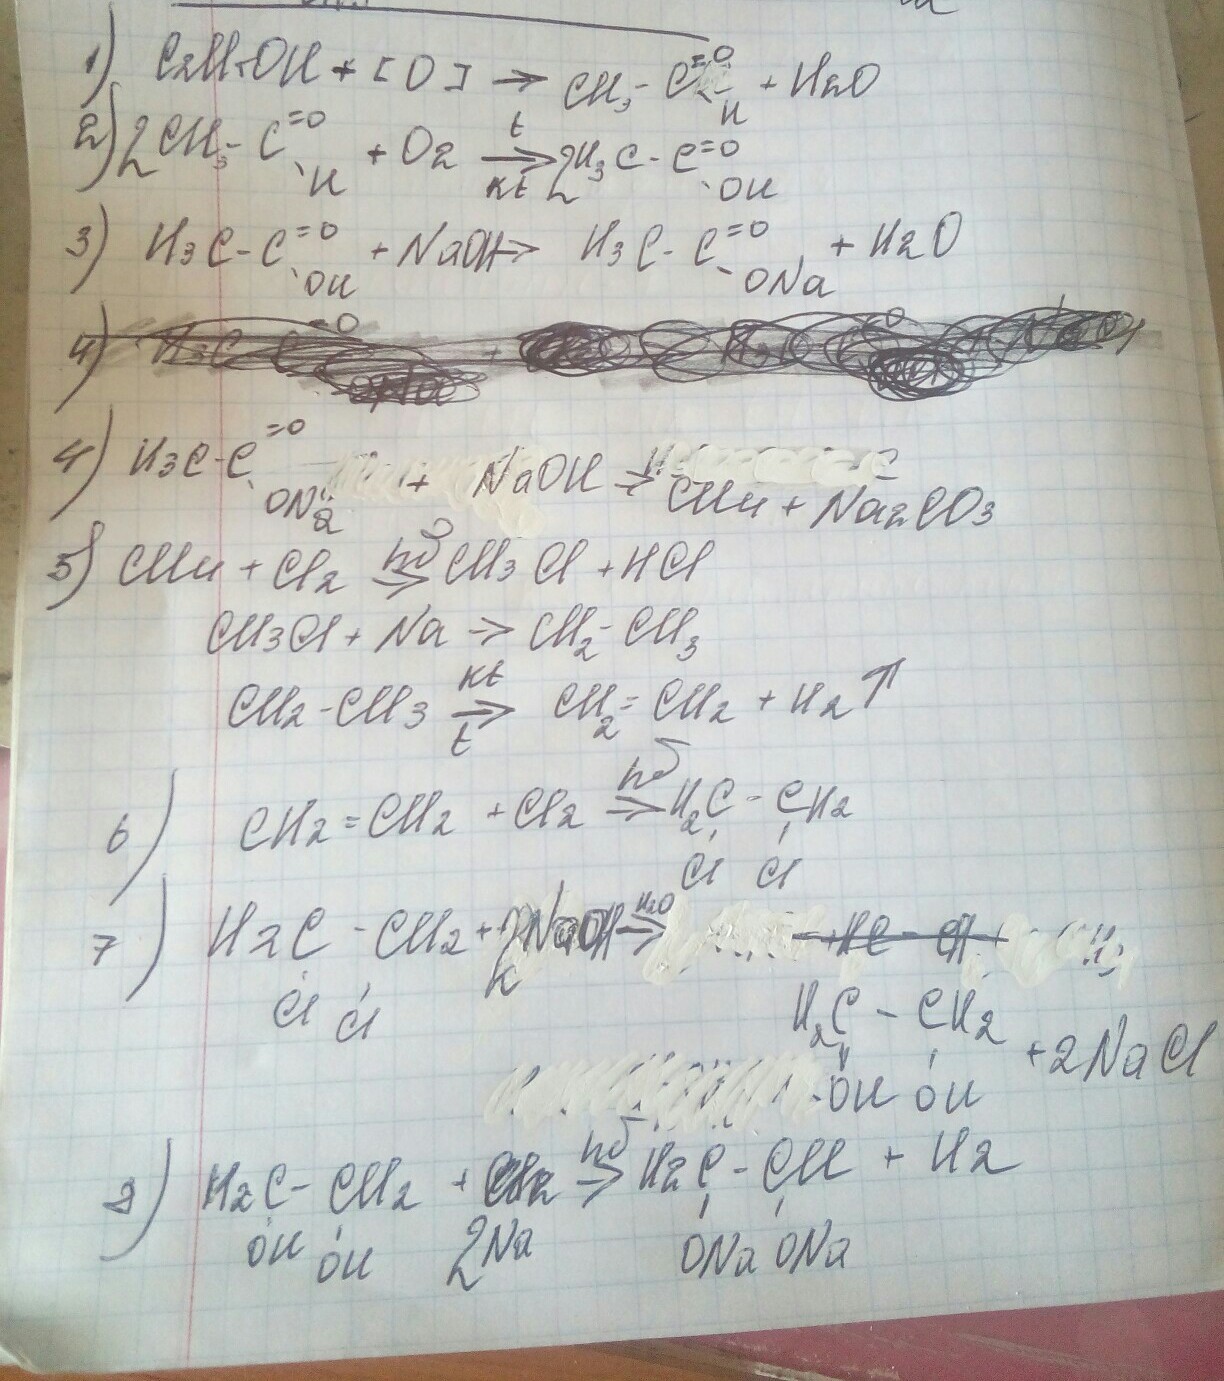 1) C2H5OH + [O] → CH3-C=O H + H2O
2) 2CH3-C=O H + O2 t → Kt 2H3C-C=O OH
3) H3C-C=O OH + NaOH → H3C-C=O ONa + H2O
4)
4) H3C-C=O ONa + NaOH → CH4 + Na2CO3
5) CH4 + Cl2 hδ → CH3Cl + HCl
CH3Cl + Na → CH2-CH3
CH2-CH3 Kt → t CH2=CH2 + H2↑
6) CH2=CH2 + Cl2 hδ → H2C-CH2
Cl Cl
7) H2C-CH2 + 2NaOH H2O →
Cl Cl
H2C-CH2 + 2NaCl
OH OH
8) H2C-CH2 + hδ → H2C-CH + H2
OH OH 2Na ONa ONa